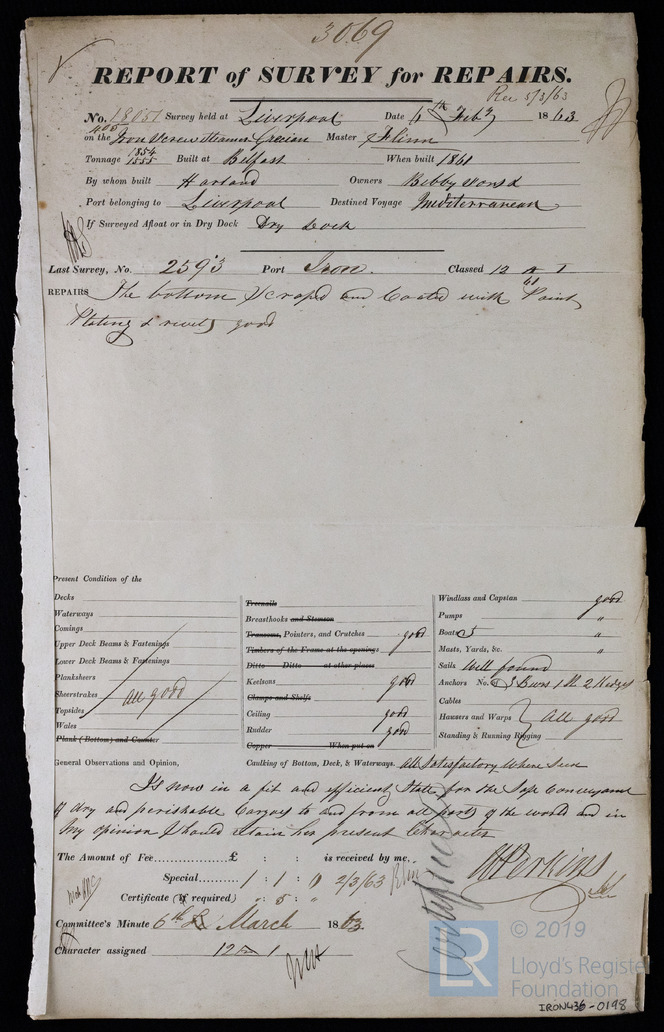 3069
REPORT of SURVEY for REPAIRS.
Rec 5/3/63
No. 18051 Survey held at Liverpool Date 6th Feby 1863
on the Iron Screw Steamer Grecian Master J Flinn
Tonnage 1854 1555 Built at Belfast When built 1861
By whom built Harland Owners Bibby Sons &
Port belonging to Liverpool Destined Voyage Mediterranean
If Surveyed Afloat or in Dry Dock Dry Dock
Last Survey, No. 2593 Port Iron. Classed 12 A 1
61
REPAIRS The bottom Scraped and Coated with Paint
Plating & rivets good
Present Condition of the
Decks
Waterways
Comings
Upper Deck Beams & Fastenings
Lower Deck Beams & Fastenings
Planksheers
Sheerstrakes all good
Topsides
Wales
Plank (Bottom) and Counter
Treenails
Breasthooks and Stemson
Transoms, Pointers, and Crutches good
Timbers of the Frame at the openings
Ditto Ditto at other places
Keelsons good
Clamps and Shelfs
Ceiling good
Rudder good
Copper When put on
Windlass and Capstan good
Pumps "
Boats 5 "
Masts, Yards, &c. "
Sails Well found
Anchors No. 3 Bowr 1 St 2 Kedges
Cables
Hawsers and Warps All good
Standing & Running Rigging
General Observations and Opinion, Caulking of Bottom, Deck, & Waterways. All Satisfactory where seen
Is now in a fit and efficient State for the Safe Conveyance
of dry and perishable Cargoes to and from all ports of the world and in
My opinion Should retain her present Character
The Amount of Fee £ : : is received by me,
Special 1 : 1 : 0 2/3/63
Certificate (if required) : 5 :
Perkins
Committee's Minute 6th March 1863.
Character assigned 12 A 1
© 2019
LR
Lloyd's Register
Foundation
IRON436-0198